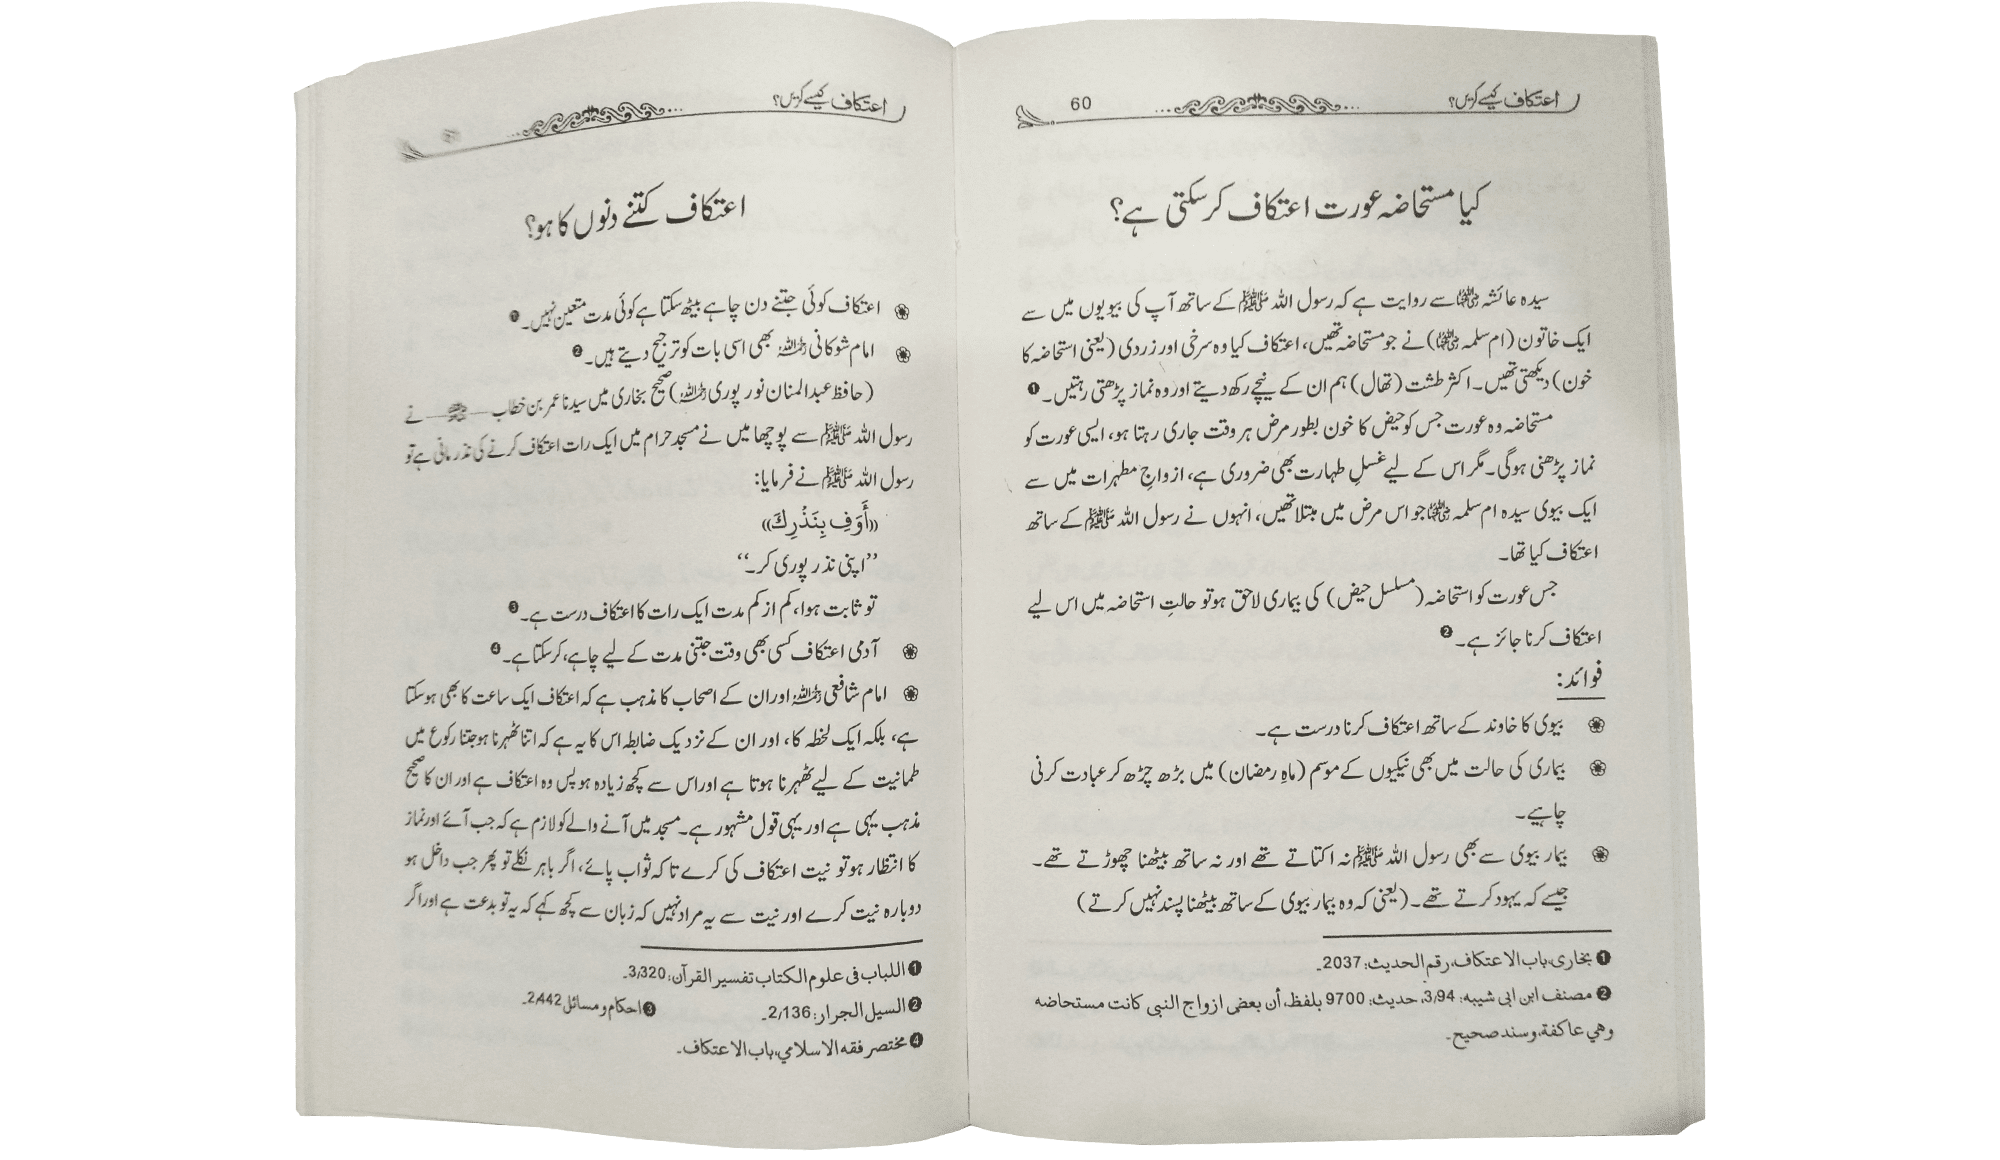 اعتکاف کیسے کریں؟
60
کیا مستحاضہ عورت اعتکاف کر سکتی ہے؟
سیدہ عائشہ رضی اللہ عنہا سے روایت ہے کہ رسول اللہ ﷺ کے ساتھ آپ کی بیویوں میں سے
ایک خاتون (ام سلمہ رضی اللہ عنہا) نے جو مستحاضہ تھیں، اعتکاف کیا وہ سرخی اور زردی (یعنی استحاضہ کا
خون) دیکھتی تھیں۔ اکثر طشت (تھال) ہم ان کے نیچے رکھ دیتے اور وہ نماز پڑھتی رہتیں۔ ❶
مستحاضہ وہ عورت جس کو حیض کا خون بطور مرض ہر وقت جاری رہتا ہو، ایسی عورت کو
نماز پڑھنی ہوگی۔ مگر اس کے لیے غسلِ طہارت بھی ضروری ہے، ازواجِ مطہرات میں سے
ایک بیوی سیدہ ام سلمہ رضی اللہ عنہا جو اس مرض میں مبتلا تھیں، انہوں نے رسول اللہ ﷺ کے ساتھ
اعتکاف کیا تھا۔
جس عورت کو استحاضہ (مسلسل حیض) کی بیماری لاحق ہو تو حالتِ استحاضہ میں اس لیے
اعتکاف کرنا جائز ہے۔ ❷
فوائد:
بیوی کا خاوند کے ساتھ اعتکاف کرنا درست ہے۔
بیماری کی حالت میں بھی نیکیوں کے موسم (ماہِ رمضان) میں بڑھ چڑھ کر عبادت کرنی
چاہیے۔
بیمار بیوی سے بھی رسول اللہ ﷺ نہ اکتاتے تھے اور نہ ساتھ بیٹھنا چھوڑتے تھے۔
جیسے کہ یہود کرتے تھے۔ (یعنی کہ وہ بیمار بیوی کے ساتھ بیٹھنا پسند نہیں کرتے)
❶ بخاری، باب الاعتکاف، رقم الحدیث: 2037۔
❷ مصنف ابن ابی شیبہ: 3/94، حدیث: 9700 بلفظ، أن بعض ازواج النبی کانت مستحاضہ
وهي عاکفة، وسند صحیح۔
اعتکاف کیسے کریں؟
اعتکاف کتنے دنوں کا ہو؟
اعتکاف کوئی جتنے دن چاہے بیٹھ سکتا ہے کوئی مدت متعین نہیں۔ ❶
امام شوکانی رحمہ اللہ بھی اسی بات کو ترجیح دیتے ہیں۔ ❷
(حافظ عبدالمنان نورپوری رحمہ اللہ) صحیح بخاری میں سیدنا عمر بن خطاب رضی اللہ عنہ نے
رسول اللہ ﷺ سے پوچھا میں نے مسجد حرام میں ایک رات اعتکاف کرنے کی نذر مانی ہے تو
رسول اللہ ﷺ نے فرمایا:
«أَوَفِ بِنَذْرِكَ»
’’اپنی نذر پوری کر۔‘‘
تو ثابت ہوا، کم از کم مدت ایک رات کا اعتکاف درست ہے۔ ❸
آدمی اعتکاف کسی بھی وقت جتنی مدت کے لیے چاہے، کر سکتا ہے۔ ❹
امام شافعی رحمہ اللہ اور ان کے اصحاب کا مذہب ہے کہ اعتکاف ایک ساعت کا بھی ہو سکتا
ہے، بلکہ ایک لحظہ کا، اور ان کے نزدیک ضابطہ اس کا یہ ہے کہ اتنا ٹھہرنا ہو جتنا رکوع میں
طمانیت کے لیے ٹھہرنا ہوتا ہے اور اس سے کچھ زیادہ ہو پس وہ اعتکاف ہے اور ان کا صحیح
مذہب یہی ہے اور یہی قول مشہور ہے۔ مسجد میں آنے والے کو لازم ہے کہ جب آئے اور نماز
کا انتظار ہو تو نیت اعتکاف کی کرے تا کہ ثواب پائے، اگر باہر نکلے تو پھر جب داخل ہو
دوبارہ نیت کرے اور نیت سے یہ مراد نہیں کہ زبان سے کچھ کہے کہ یہ تو بدعت ہے اور اگر
❶ اللباب فی علوم الکتاب تفسیر القرآن: 3/320۔
❷ السیل الجرار: 2/136۔ ❸ احکام و مسائل 2/442۔
❹ مختصر فقہ الاسلامي، باب الاعتکاف۔